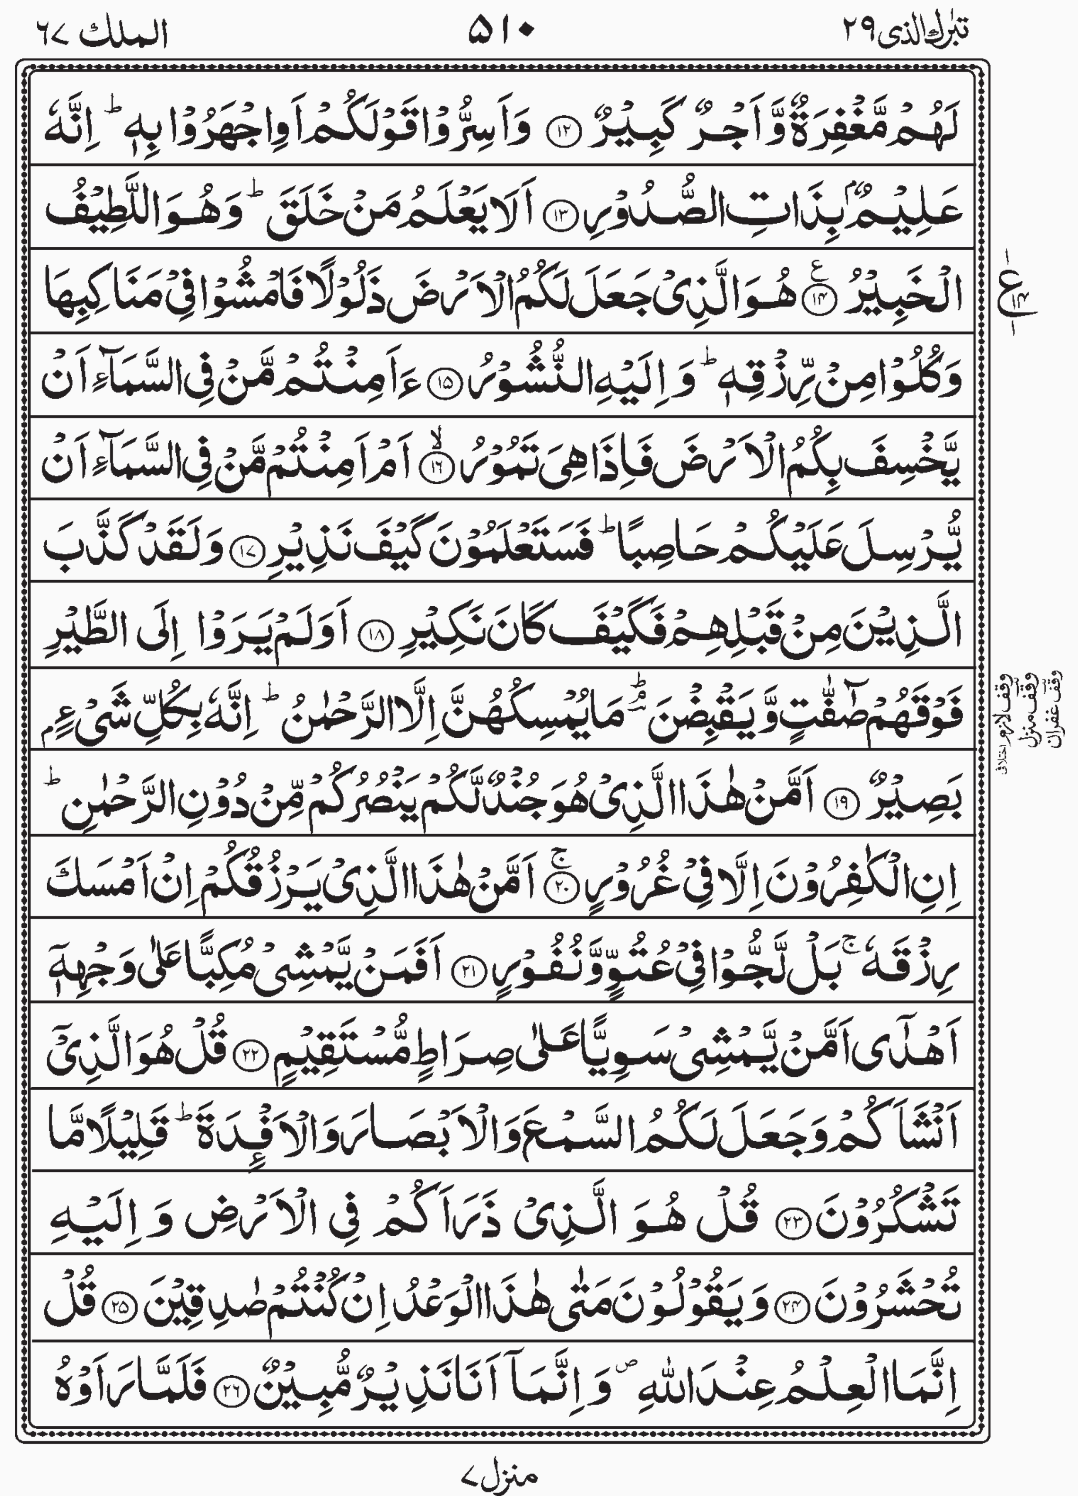 تبٰرك الذى ٢٩
٥١٠
الملك ٦٧
لَهُمْ مَّغْفِرَةٌ وَّاَجْرٌ كَبِيْرٌ ١٢ وَاَسِرُّوْا قَوْلَكُمْ اَوِاجْهَرُوْا بِهٖ ؕ اِنَّهٗ
عَلِيْمٌۢ بِذَاتِ الصُّدُوْرِ ١٣ اَلَا يَعْلَمُ مَنْ خَلَقَ ؕ وَهُوَ اللَّطِيْفُ
الْخَبِيْرُ ١٤ ع هُوَ الَّذِىْ جَعَلَ لَكُمُ الْاَرْضَ ذَلُوْلًا فَامْشُوْا فِىْ مَنَاكِبِهَا
وَكُلُوْا مِنْ رِّزْقِهٖ ؕ وَاِلَيْهِ النُّشُوْرُ ١٥ ءَاَمِنْتُمْ مَّنْ فِى السَّمَآءِ اَنْ
يَّخْسِفَ بِكُمُ الْاَرْضَ فَاِذَا هِىَ تَمُوْرُ ۙ ١٦ اَمْ اَمِنْتُمْ مَّنْ فِى السَّمَآءِ اَنْ
يُّرْسِلَ عَلَيْكُمْ حَاصِبًا ؕ فَسَتَعْلَمُوْنَ كَيْفَ نَذِيْرِ ١٧ وَلَقَدْ كَذَّبَ
الَّذِيْنَ مِنْ قَبْلِهِمْ فَكَيْفَ كَانَ نَكِيْرِ ١٨ اَوَلَمْ يَرَوْا اِلَى الطَّيْرِ
فَوْقَهُمْ صٰٓفّٰتٍ وَّيَقْبِضْنَ ؕۘ مَا يُمْسِكُهُنَّ اِلَّا الرَّحْمٰنُ ؕ اِنَّهٗ بِكُلِّ شَىْءٍۭ
بَصِيْرٌ ١٩ اَمَّنْ هٰذَا الَّذِىْ هُوَ جُنْدٌ لَّكُمْ يَنْصُرُكُمْ مِّنْ دُوْنِ الرَّحْمٰنِ ؕ
اِنِ الْكٰفِرُوْنَ اِلَّا فِىْ غُرُوْرٍ ۚ ٢٠ اَمَّنْ هٰذَا الَّذِىْ يَرْزُقُكُمْ اِنْ اَمْسَكَ
رِزْقَهٗ ۚ بَلْ لَّجُّوْا فِىْ عُتُوٍّ وَّنُفُوْرٍ ٢١ اَفَمَنْ يَّمْشِىْ مُكِبًّا عَلٰى وَجْهِهٖۤ
اَهْدٰٓى اَمَّنْ يَّمْشِىْ سَوِيًّا عَلٰى صِرَاطٍ مُّسْتَقِيْمٍ ٢٢ قُلْ هُوَ الَّذِىْۤ
اَنْشَاَكُمْ وَجَعَلَ لَكُمُ السَّمْعَ وَالْاَبْصَارَ وَالْاَفْـِٕدَةَ ؕ قَلِيْلًا مَّا
تَشْكُرُوْنَ ٢٣ قُلْ هُوَ الَّذِىْ ذَرَاَكُمْ فِى الْاَرْضِ وَاِلَيْهِ
تُحْشَرُوْنَ ٢٤ وَيَقُوْلُوْنَ مَتٰى هٰذَا الْوَعْدُ اِنْ كُنْتُمْ صٰدِقِيْنَ ٢٥ قُلْ
اِنَّمَا الْعِلْمُ عِنْدَ اللّٰهِ ص وَاِنَّمَاۤ اَنَا نَذِيْرٌ مُّبِيْنٌ ٢٦ فَلَمَّا رَاَوْهُ
ع
١٤
١
وقف لازم اختلافی
وقف منزل
وقف غفران
منزل ٧